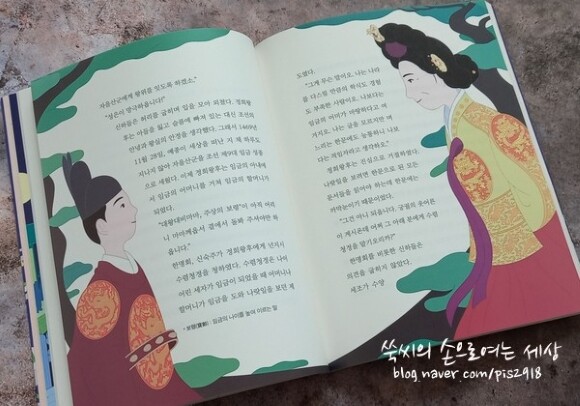 자을산군에게 왕위를 잇도록 하겠소."
"성은이 망극하옵니다!"
신하들은 허리를 굽히며 입을 모아 외쳤다. 정희왕
후는 아들을 잃고 슬픔에 빠져 있는 대신 조선의
안녕과 왕실의 안정을 생각했다. 그래서 1469년
11월 28일, 예종이 세상을 떠난 지 채 하루도
지나지 않아 자을산군을 조선 제9대 임금 성종
으로 세웠다. 이제 정희왕후는 임금의 아내에
서 임금의 어머니를 거쳐 임금의 할머니가
되었다.
"대왕대비마마, 주상의 보령*이 아직 어리
니 마마께옵서 곁에서 돌봐 주셔야만 하
옵니다."
한명회, 신숙주가 정희왕후에게 넌지시
수렴청정을 청하였다. 수렴청정은 나이
어린 세자가 임금이 되었을 때 어머니나
할머니가 임금을 도와 나랏일을 보던 제
* 보령(寶齡): 임금의 나이를 높여 이르는 말
도였다.
"그게 무슨 말이오. 나는 나라
를 다스릴 만큼의 학식도 경험
도 부족한 사람이오. 나보다는
임금의 어머니가 마땅하다고 여
겨지오. 나는 글을 모르지만 며
느리는 한문에도 능통하니 나보
다는 적임자라고 생각하오."
정희왕후는 진심으로 거절하였다.
나랏일을 보려면 한문으로 된 모든
문서들을 읽어야 하는데 한문에는
까막눈이기 때문이었다.
"그건 아니 되옵니다. 궁궐의 웃어른
이 계시온데 어찌 그 아래 분에게 수렴
청정을 맡기오리까?"
한명회를 비롯한 신하들은
의견을 굽히지 않았다.
세조가 수양
쑥씨의 손으로여는 세상
blog.naver.com/pis2918